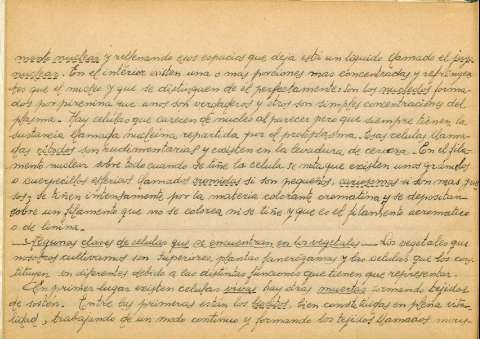 mento nuclear y rellenando esos espacios que deja está un líquido llamado el jugo
nuclear. En el interior existen una o mas porciones mas concentradas y refringen-
tes que el nucleo y que se distinguen de el perfectamente: son los nucleolos forma-
dos por pirenina que unos son verdaderos y otros son simples concentraciones del
plasma. Hay celulas que carecen de núcleo al parecer pero que siempre tienen la
sustancia llamada nucleina, repartida por el protoplasma. Esas celulas llama-
das citodes son rudimentarias y existen en la levadura de cerveza. En el fila-
mento nuclear sobre todo cuando se tiñe la celula se nota que existen unos gránulos
o cuerpecillos esfericos llamados si son pequeños, si son mas grue-
sos, y se tiñen intensamente por la materia colorante cromatina y se depositan
sobre un filamento que no se colorea ni se tiñe y que es el filamento acromatico
o de linina.
Algunas clases de celulas que se encuentran en los vegetales — Los vegetales que
nosotros cultivamos son superiores, plantas fanerógamas y las celulas que los cons-
tituyen son diferentes debido a las distintas funciones que tienen que representar.
En primer lugar existen celulas vivas y hay otras muertas formando tejidos
de sostén. Entre las primeras están los tejidos, bien constituidas en plena
, trabajando de un modo continuo y formando los tejidos llamados meris-